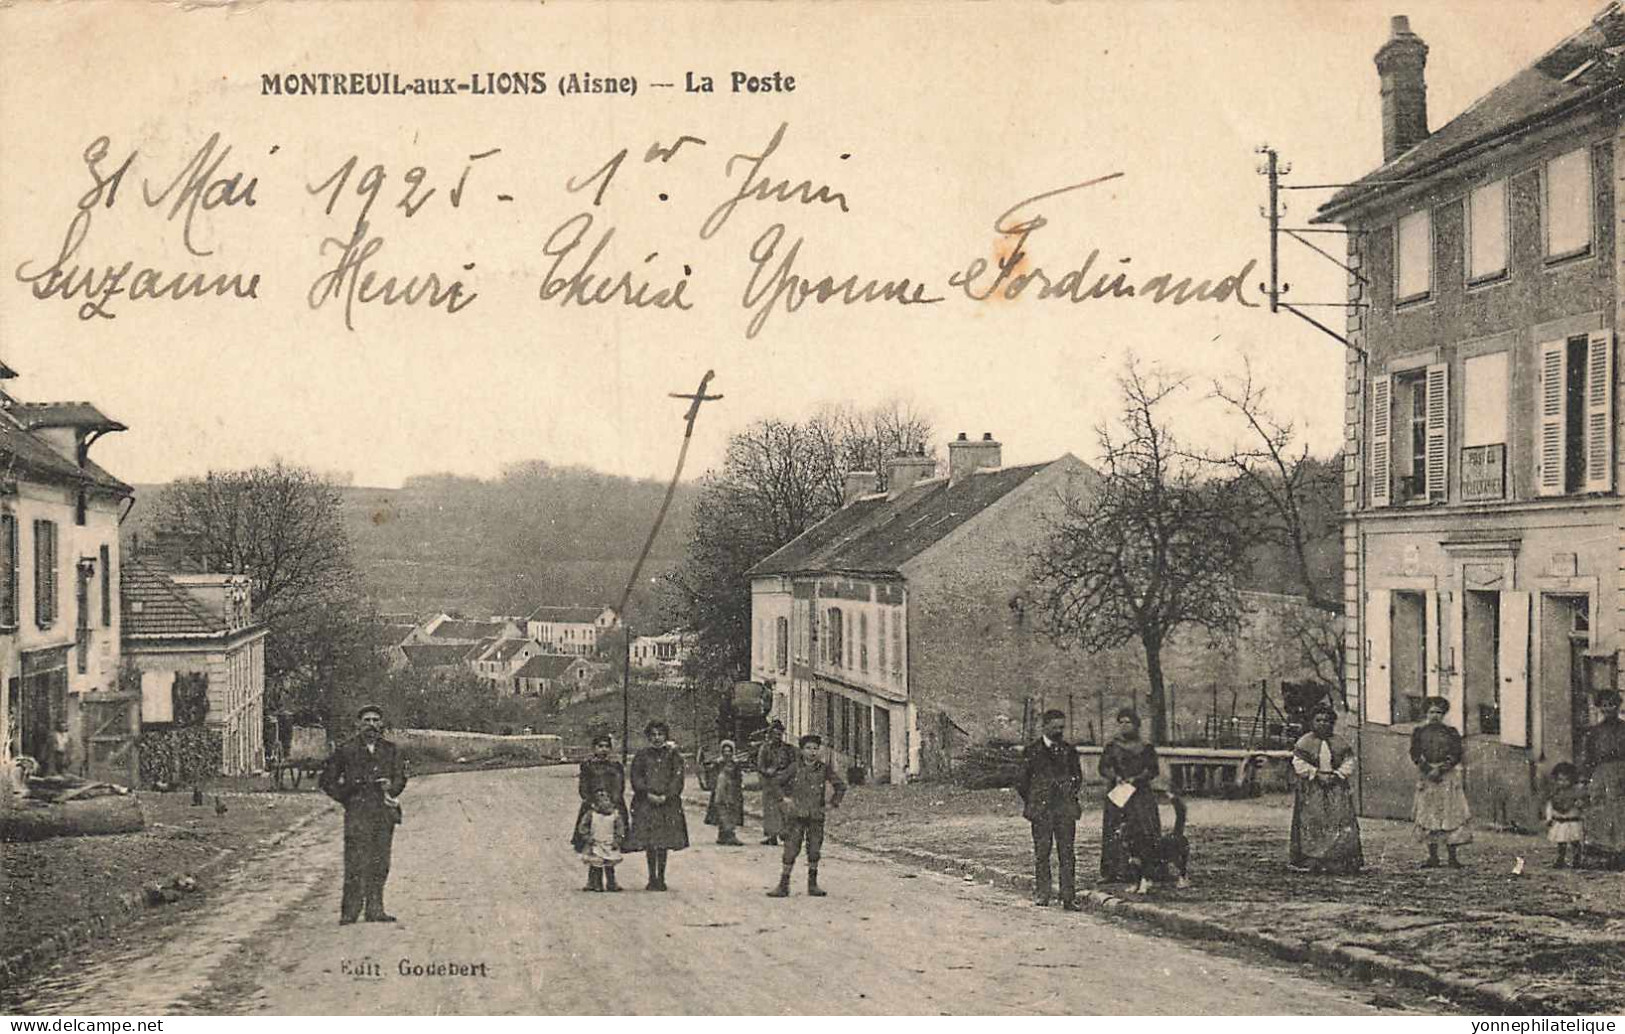 MONTREUIL-aux-LIONS (Aisne) — La Poste
31 Mai 1925 - 1er Juin
Suzanne Henri Thérèse Yvonne Ferdinand
Edit. Godebert
www.delcampe.net
yonnephilatelique